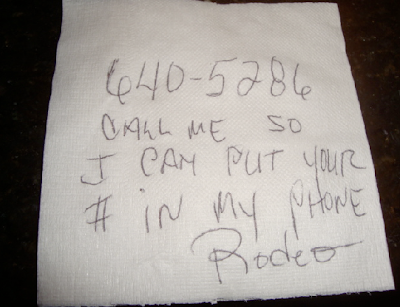 640-5286
CALL ME SO
I CAN PUT YOUR
# IN MY PHONE
Rodeo